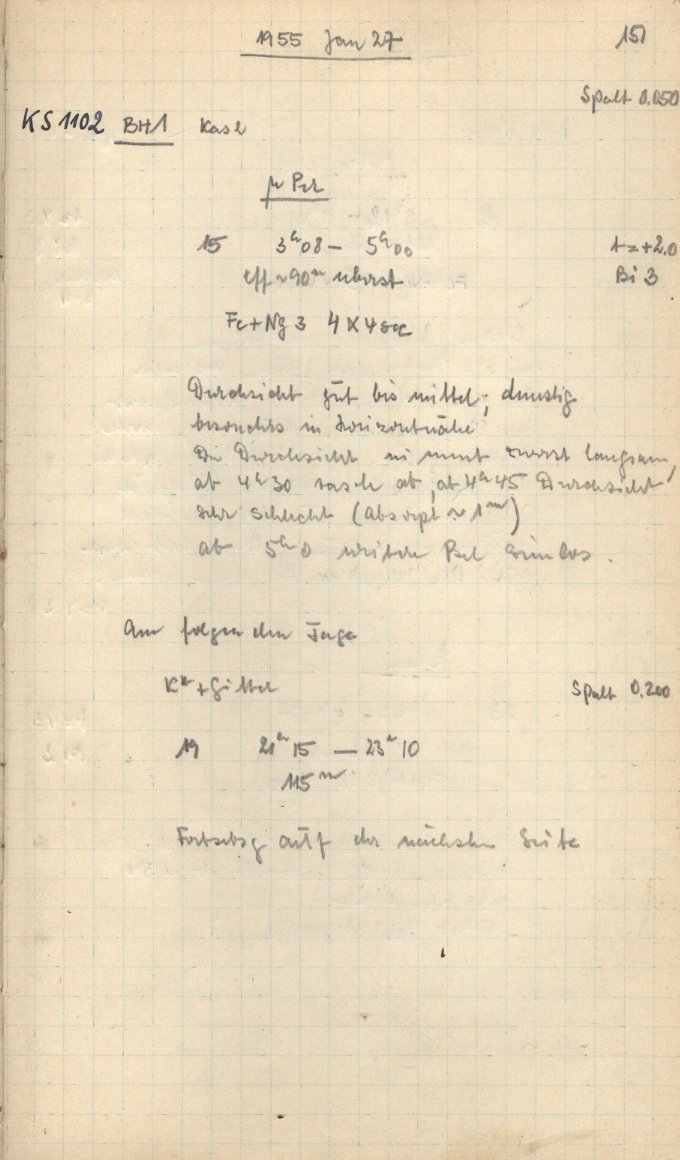 1955 Jan 27 151
Spalt 0.050
KS 1102 BH1 Kas 2
μ Per
15 3h08 – 5h00 t=+2.0
eff ~90m überst Bi 3
Fe+Ng 3 4×4 sec
Durchsicht gut bis mittel; dunstig
besonders in Horizontnähe
Die Durchsicht nimmt zuerst langsam,
ab 4h30 rasch ab, ab 4h45 Durchsicht
sehr schlecht (Absorpt ~ 1m)
ab 5h0 weitere Bel sinnlos.
Am folgenden Tage
+Gitter Spalt 0.200
19 21h15 – 23h10
115m
Fortsetzg auf der nächsten Seite